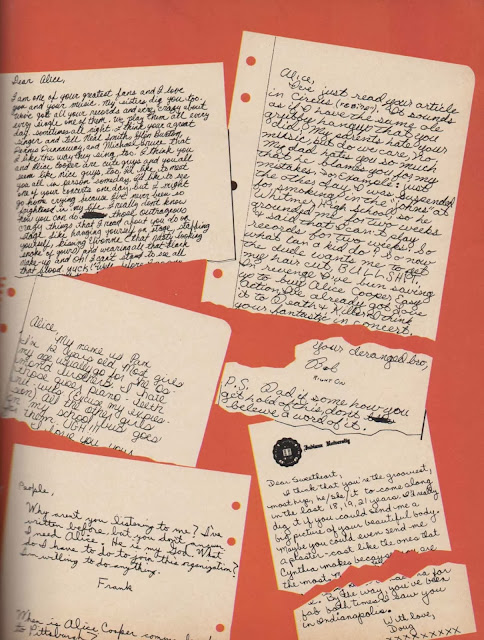 Dear Alice,
I am one of your greatest fans and I love
you and your music. My sisters dig you too.
We've got all your records and are crazy about
every single one of them. We play them all every
day, sometimes all night. I think your a great
singer and tell Neal Smith, Glen Buxton,
Dennis Dunnaway, and Michael Bruce that
I like the way they sing, too. I think you
and Alice Cooper are cute guys and you all
seem like nice guys, too. I'd like to meet
you all in person someday. I'd like to see
one of your concerts one day, but I might
go home crying because I've never been so
frightened in my life. I really don't know
how you can do those outrageous
crazy things that I read about you do on
stage like hanging yourself on stage, stabbing
yourself, kissing Yvonne (that nasty looking
snake of yours) and wearing all that black
make-up and OH! I can't stand to see all
that blood, yuck!
Alice,
I've just read your article
in Circus. It sounds
as if you have the same ole
gritboy hangups that you
did. My parents hate your
music, but do we care, No.
My dad hate you so much
that he blames you for my
mistakes, for example: just
the other day I was suspended
for smoking in the johns at
Whitmer High School, so he
grounded me for two weeks
& said that I can't play
records for two weeks. So
what can a kid do? So now
the dude wants me to get
my hair cut. BULLSHIT!
In revenge I've been saving
up to buy Alice Cooper Easy
Action. I've already got Love
it to Death & Killer. I think
your fantastic in concert.
Alice
My name is Pam
I've 13 years old. Most girls
my age usually go for the Os-
mond Brothers. I hate
those queer piano-teeth
All the other girls
for my school just goes
for them. UGH!!!
I love you
your deranged bro,
Bob
P.S. Dad, if some how you
get hold of this don't
believe a word of it.
Indiana University
Dear Sweetheart,
I think that you're the grooviest,
most hip, he/she/it to come along
in the last 18, 19, 21 years. I'd really
dig it if you could send me a
big picture of your beautiful body.
Maybe you could even send me
a plaster-cast like the ones that
Cynthia makes because you are
the most
By the way, you've been
fab both times I saw you
in Indianapolis.
With love,
Doug
XXXXXXXXX
People,
Why aren't you listening to me? I've
written before, but you don't
I need Alice. He is my God. What
do I have to do to join this organization?
I'm willing to do anything.
Frank
When is Alice Cooper coming
to Pittsburgh?